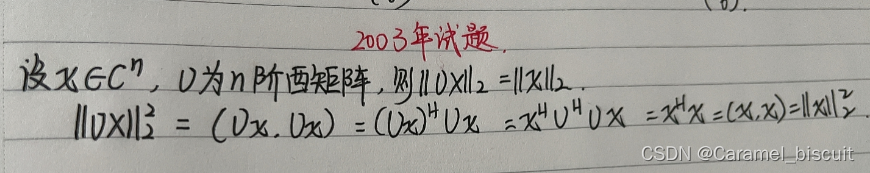 2003年试题.
设x∈Cⁿ, U为n阶酉矩阵, 则||Ux||₂=||x||₂.
||Ux||₂² = (Ux, Ux) = (Ux)ᴴUx = xᴴUᴴUx = xᴴx=(x,x)=||x||₂².
CSDN @Caramel_biscuit